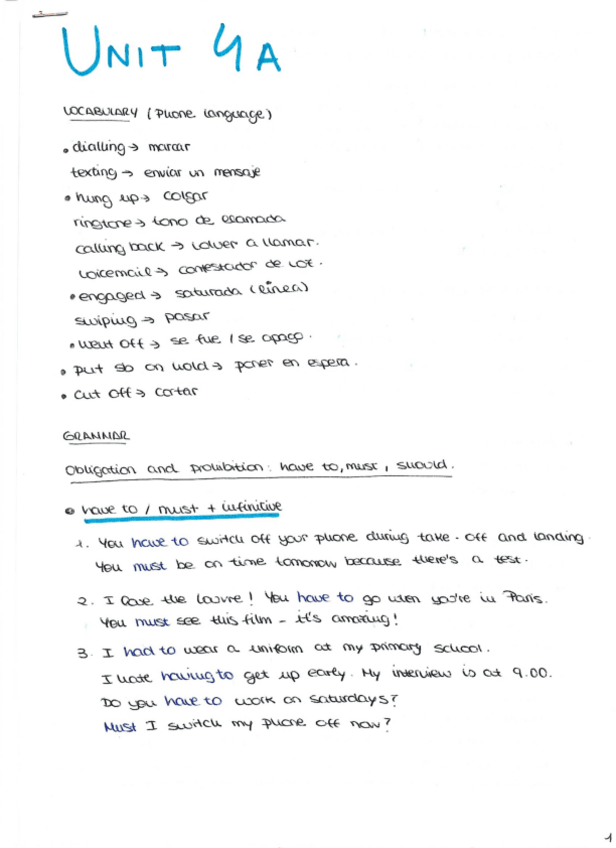 UNIT 4A
VOCABULARY (Phone language)
• dialling → marcar
texting → enviar un mensaje
• hung up → colgar
ringtone → tono de llamada
calling back → volver a llamar.
voicemail → contestador de voz.
• engaged → saturada (línea)
swiping → pasar
• went off → se fue / se apagó.
• put sb on hold → poner en espera.
• cut off → cortar
GRAMMAR
Obligation and prohibition: have to, must, should.
• have to / must + infinitive
1. You have to switch off your phone during take-off and landing.
You must be on time tomorrow because there's a test.
2. I love the Louvre! You have to go when you're in Paris.
You must see this film - it's amazing!
3. I had to wear a uniform at my primary school.
I hate having to get up early. My interview is at 9.00.
Do you have to work on saturdays?
Must I switch my phone off now?
1